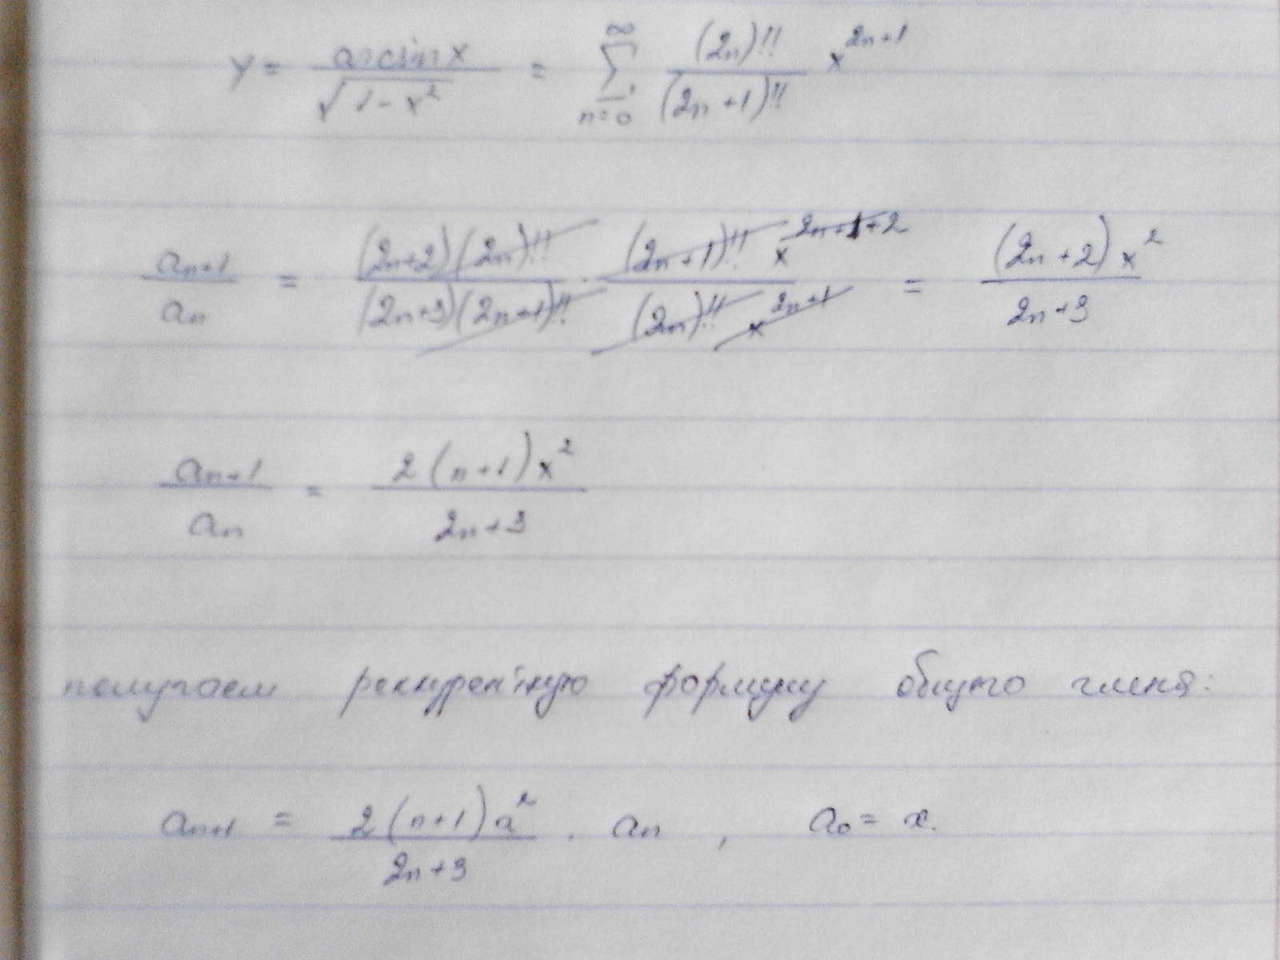 y = arcsin x / √(1 - x²) = ∑_{n=0}^{∞} (2n)!! / (2n+1)!! x^{2n+1}
a_{n+1} / a_n = (2n+2)(2n)!! / (2n+3)(2n+1)!! · (2n+1)!! x^{2n+1+2} / (2n)!! x^{2n+1} = (2n+2) x² / 2n+3
a_{n+1} / a_n = 2(n+1)x² / 2n+3
получаем рекурентную формулу общего члена:
a_{n+1} = 2(n+1)a² / 2n+3 · a_n , a_0 = x.